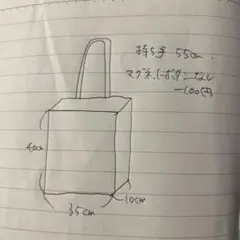 持ち手 55cm
マグネットボタンなし
-100円
40cm
10cm
35cm